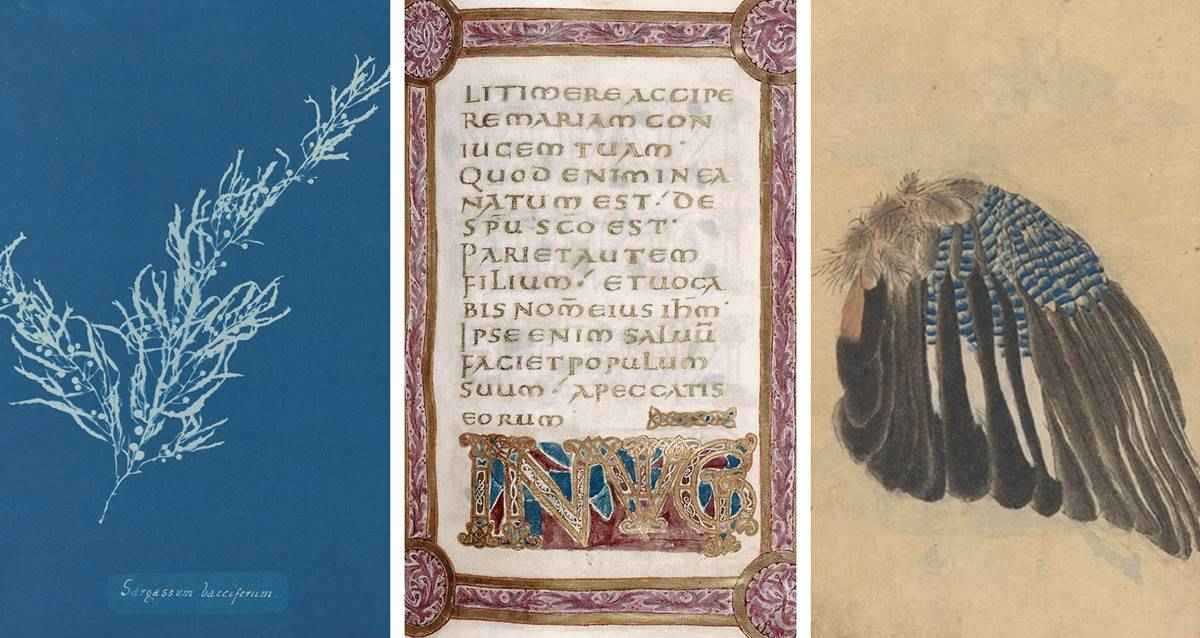 Sargassum bacciferum.
LITIMERE ACCIPE
REMARIAM CON
IUGEM TUAM·
QUOD ENIM IN EA
NATUM EST·DE
SP̄U SC̄O EST·
PARIET AUTEM
FILIUM· ET UOCA
BIS NOM̄ EIUS IHM̄·
IPSE ENIM SALUŪ
FACIET POPULUM
SUUM· A PECCATIS
EORUM
IN UIG